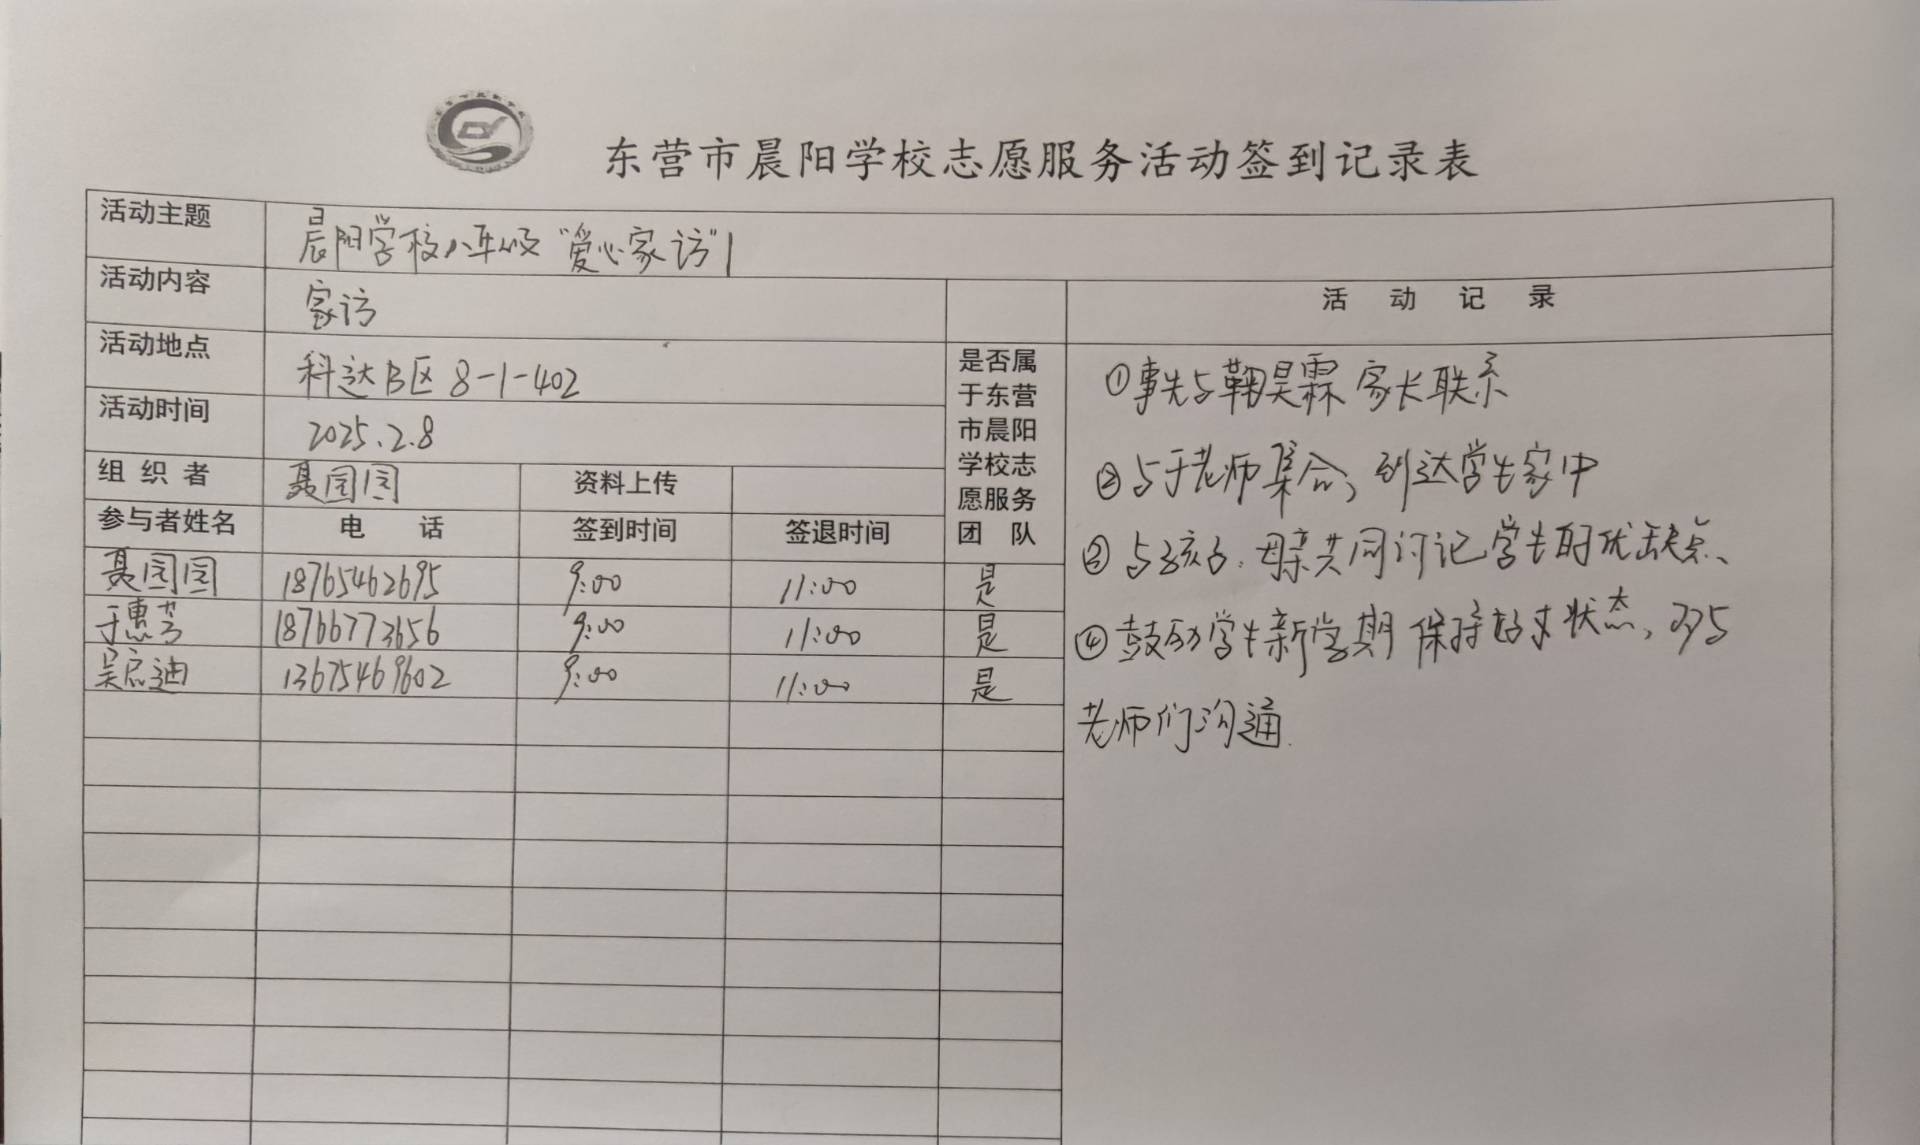 东营市晨阳学校志愿服务活动签到记录表
活动主题 晨阳学校八年级“爱心家访”1
活动内容 家访 活 动 记 录
活动地点 科达B区 8-1-402
活动时间 2025.2.8
组 织 者 聂园园 资料上传
参与者姓名 电 话 签到时间 签退时间
是否属
于东营
市晨阳
学校志
愿服务
团 队
聂园园 18765462695 9:00 11:00 是
于惠芳 18766773656 9:00 11:00 是
吴启迪 13675469602 9:00 11:00 是
①事先与鞠昊霖家长联系
②与于老师集合,到达学生家中
③与孩子、母亲共同讨论学生的优缺点、
④鼓励学生新学期保持好状态,多与
老师们沟通.